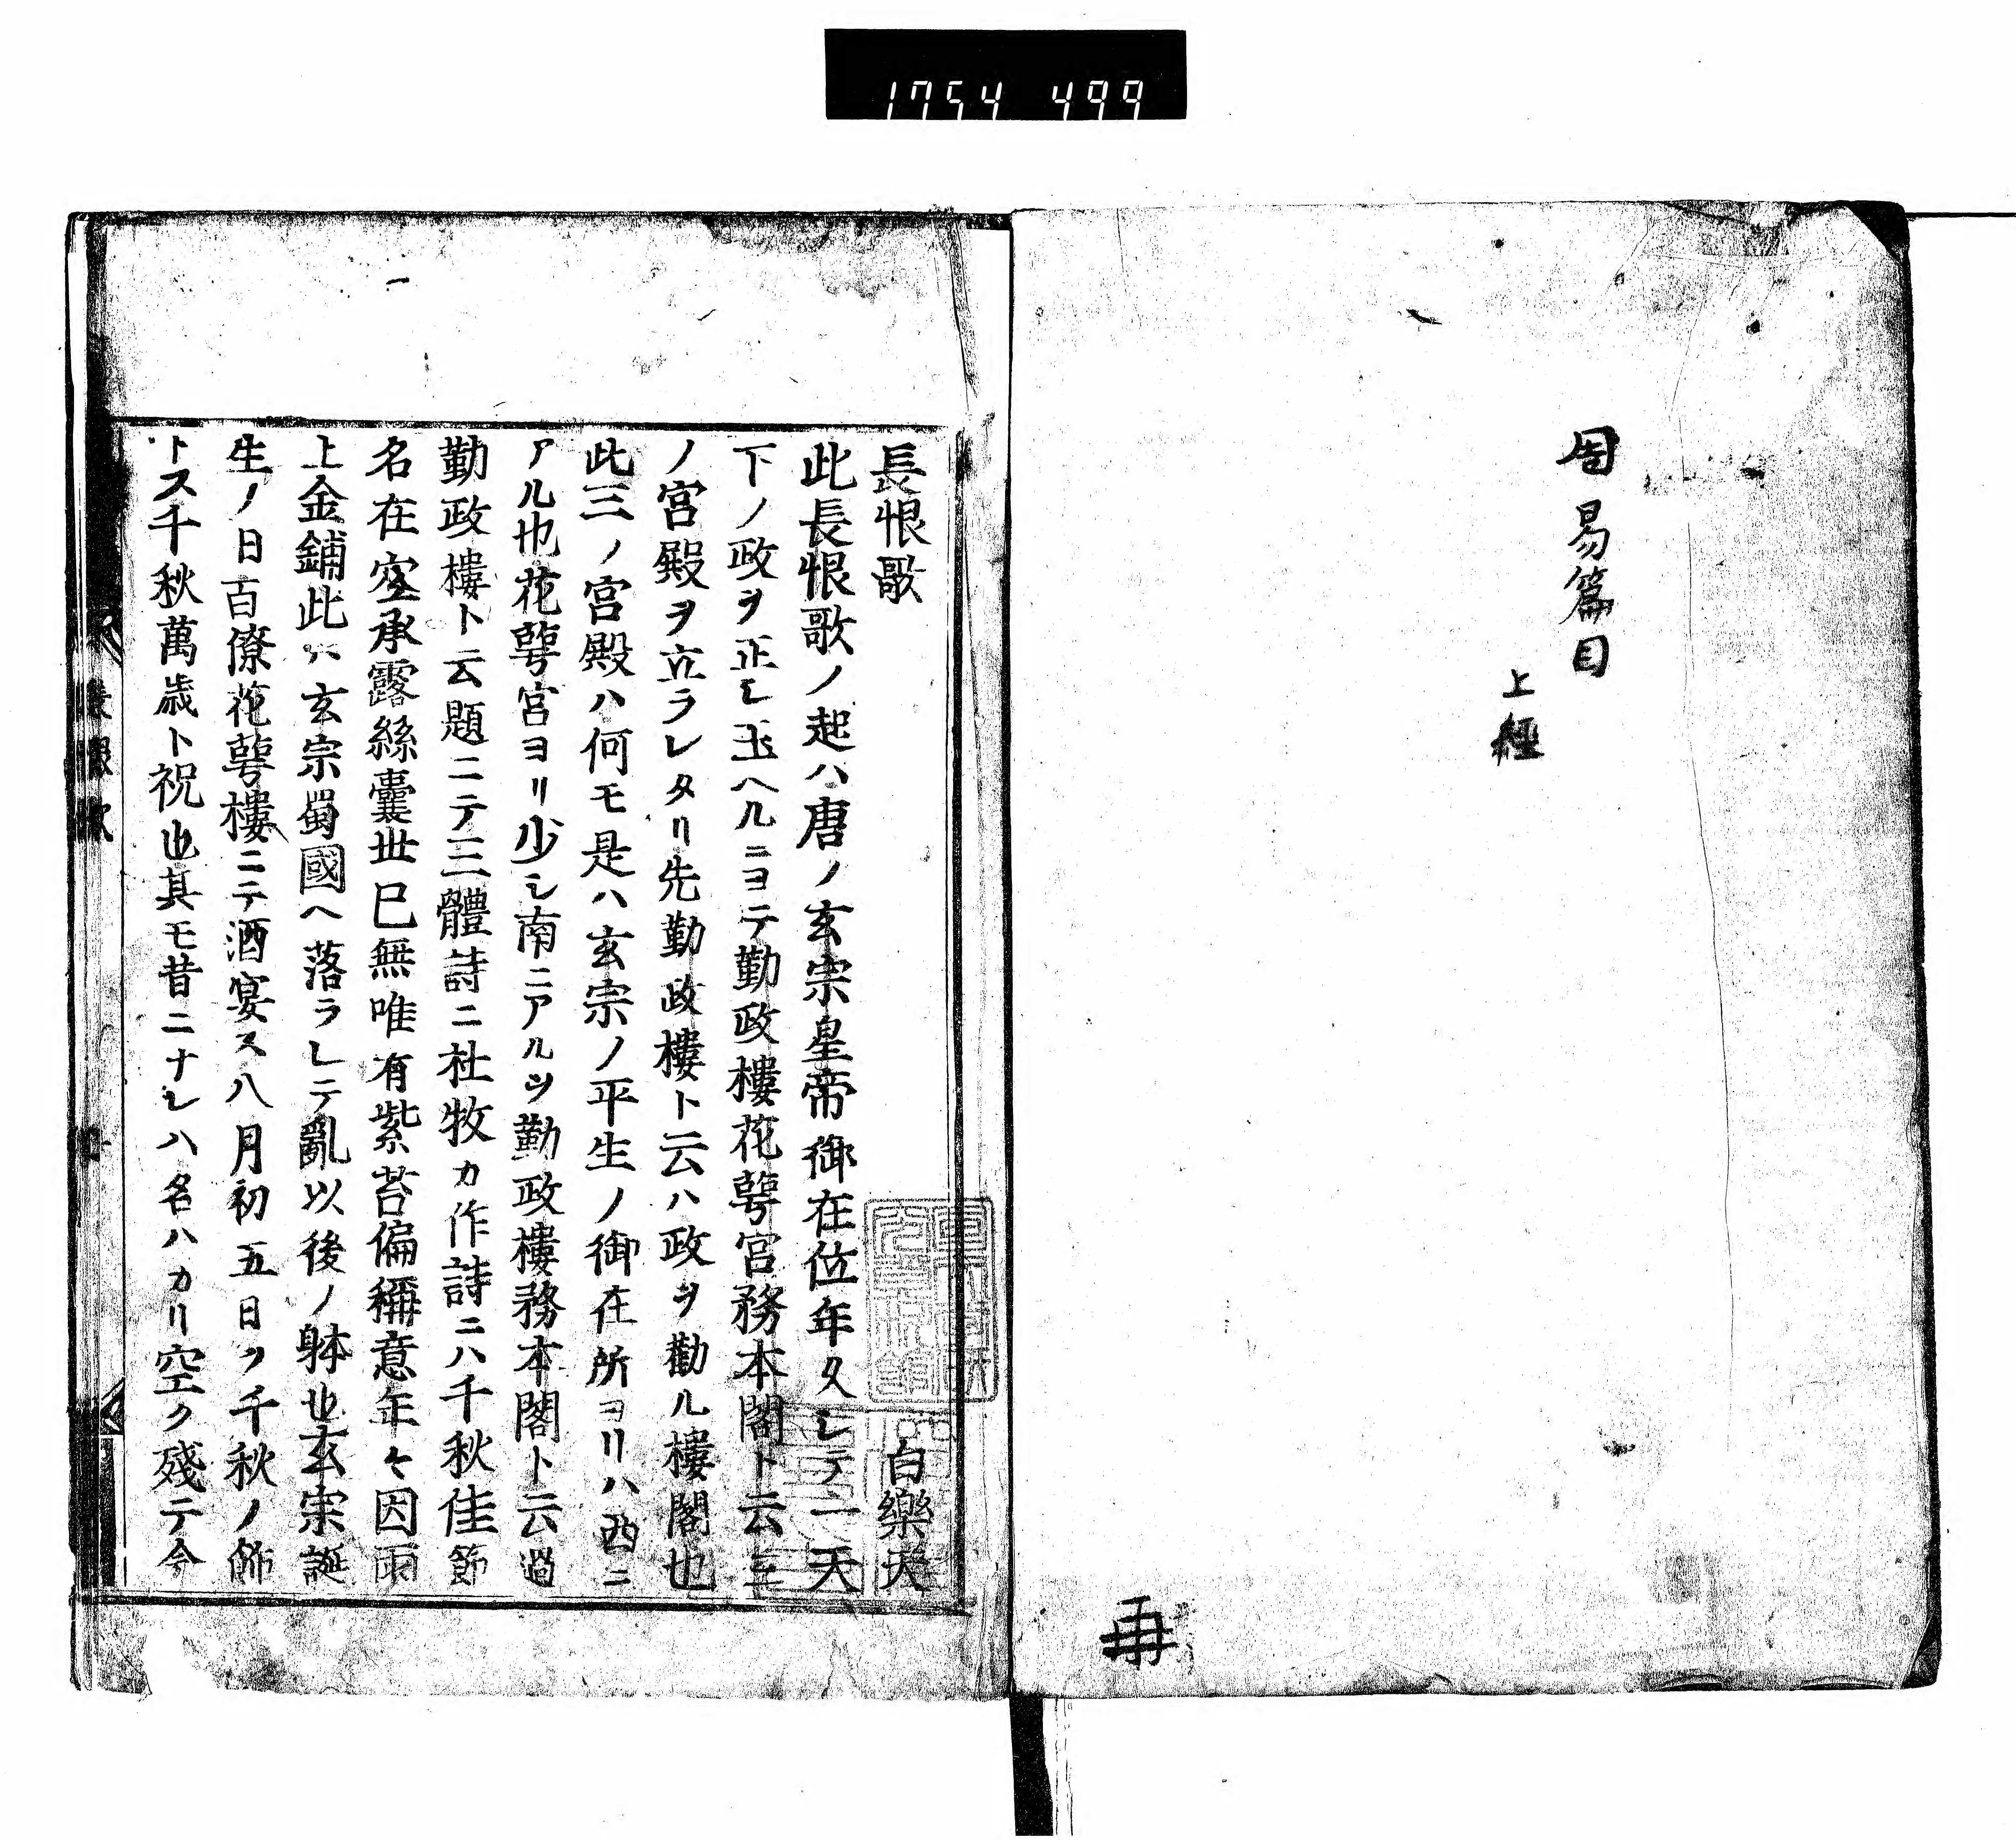 1754 499
周易篇目
上經
長恨歌
白樂天
此長恨歌ノ起ハ唐ノ玄宗皇帝御在位年久シテ一天
下ノ政ヲ正シ玉ヘルニヨテ勤政樓花萼宮務本閣ト云三
ノ宮殿ヲ立ラレタリ先勤政樓ト云ハ政ヲ勸ル樓閣也
此三ノ宮殿ハ何モ是ハ玄宗ノ平生ノ御在所ヨリハ西ニ
アル也花萼宮ヨリ少シ南ニアルヲ勤政樓務本閣ト云過
勤政樓ト云題ニテ三體詩ニ杜牧カ作詩ニハ千秋佳節
名在空承露絲囊世已無唯有紫苔偏稱意年々因雨
上金鋪此ハ玄宗蜀國ヘ落ラレテ亂以後ノ躰也玄宗誕
生ノ日百僚花萼樓ニテ酒宴ス八月初五日ヲ千秋ノ節
トス千秋萬歳ト祝也其モ昔ニナレハ名ハカリ空ク殘テ今